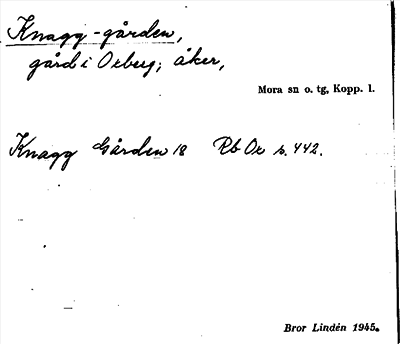 Knagg-gården,
gård i Oxberg; åker,
Mora sn o. tg, Kopp. l.
Knagg Gården 18 Rb Ox s. 442.
Bror Lindén 1945.